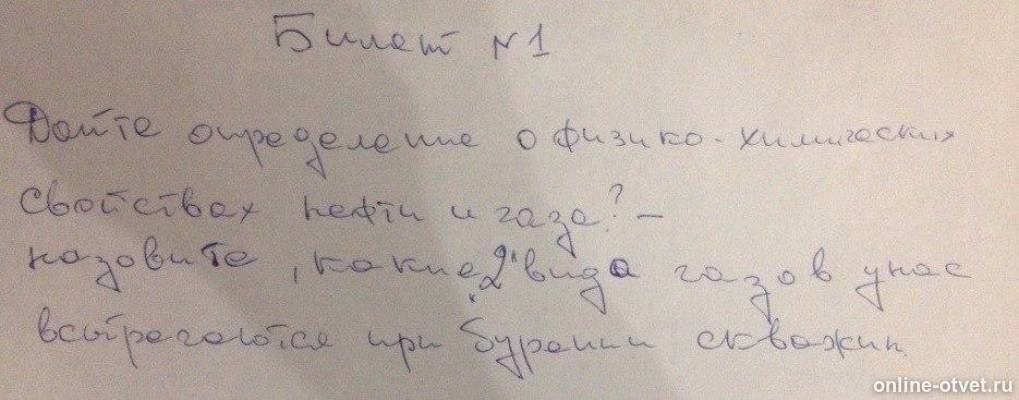 Билет №1
Дайте определение о физико-химических
свойствах нефти и газа? -
назовите, какие "2" вида газов у нас
встречаются при бурении скважин.
online-otvet.ru